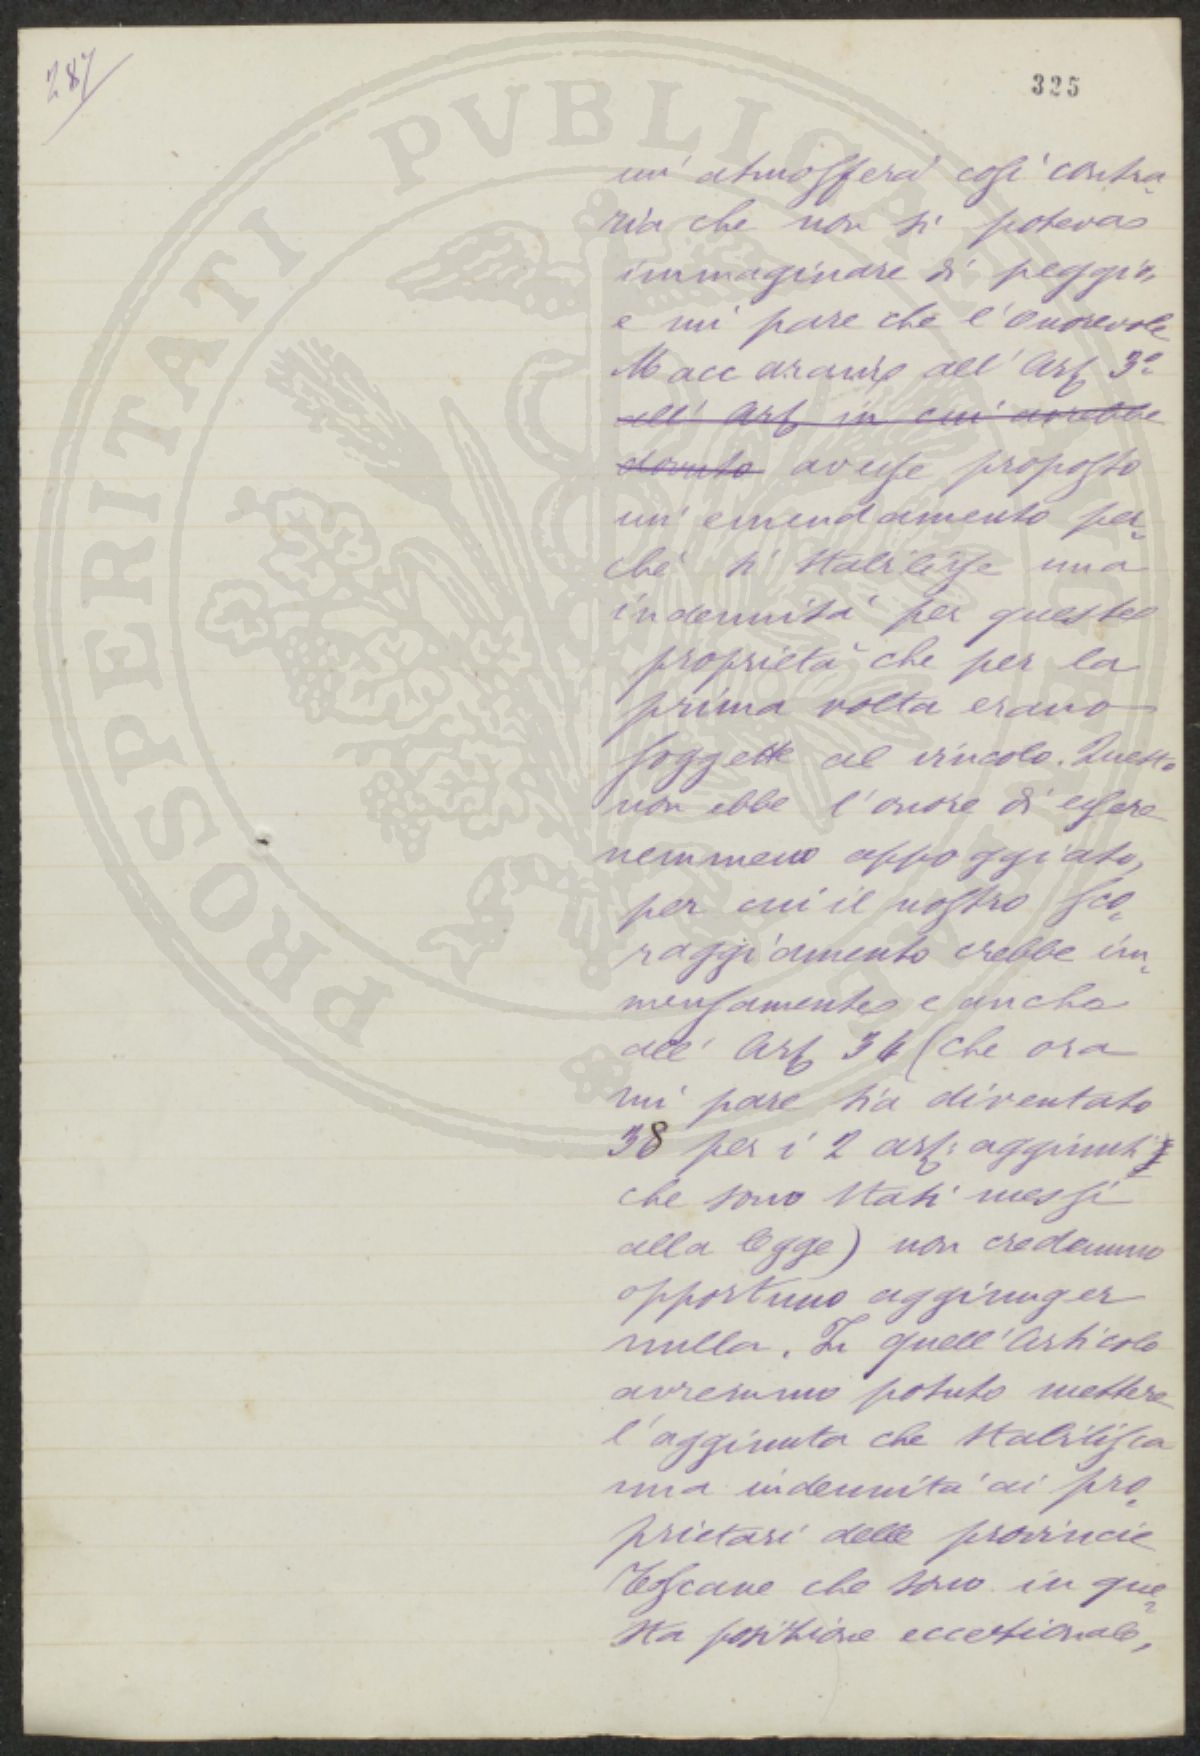 287
325
PROSPERITATI PVBLICAE
un' atmosfera così contra-
ria che non si poteva
immaginare di peggio,
e mi pare che l'Onorevole
Maccaranis all' Art 3º
all' Art in cui avrebbe
dovuto avesse proposto
un' emendamento per-
ché si stabilisse una
indennità per queste
proprietà che per la
prima volta erano
soggette al vincolo. Questo
non ebbe l'onore di essere
nemmeno appoggiato,
per cui il nostro sco-
raggiamento crebbe im-
mensamente e anche
all' Art 34 (che ora
mi pare sia diventato
38 per i 2 art: aggiunti
che sono stati messi
alla legge) non credemmo
opportuno aggiunger
nulla. In quell'Articolo
avremmo potuto mettere
l'aggiunta che stabilisca
una indennità ai pro-
prietari delle provincie
Toscane che sono in que-
sta posizione eccezionale,